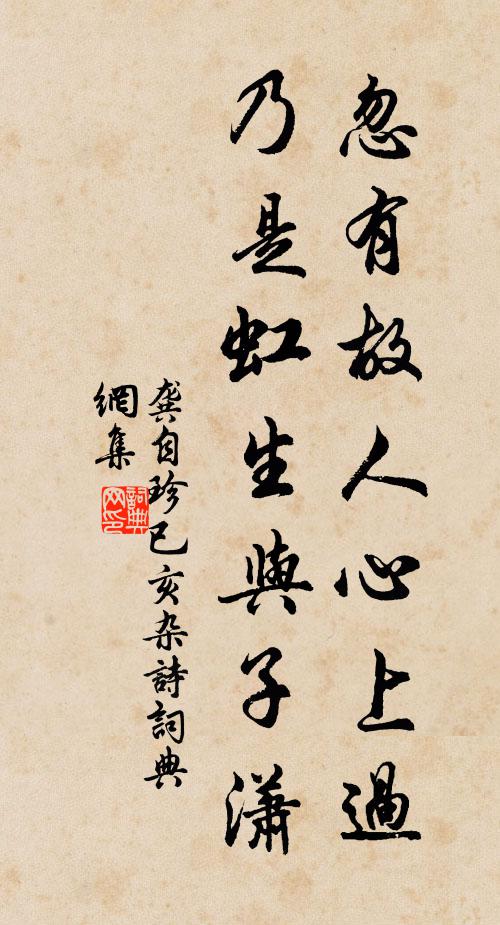 忽有故人心上過
乃是虹生與子瀟
龚自珍已亥杂詩詞典
網集
詞典
网印